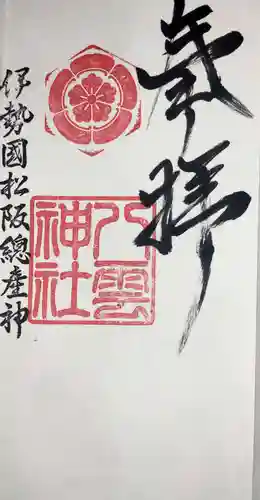 奉拝
八雲
神社
伊勢國松阪總産神